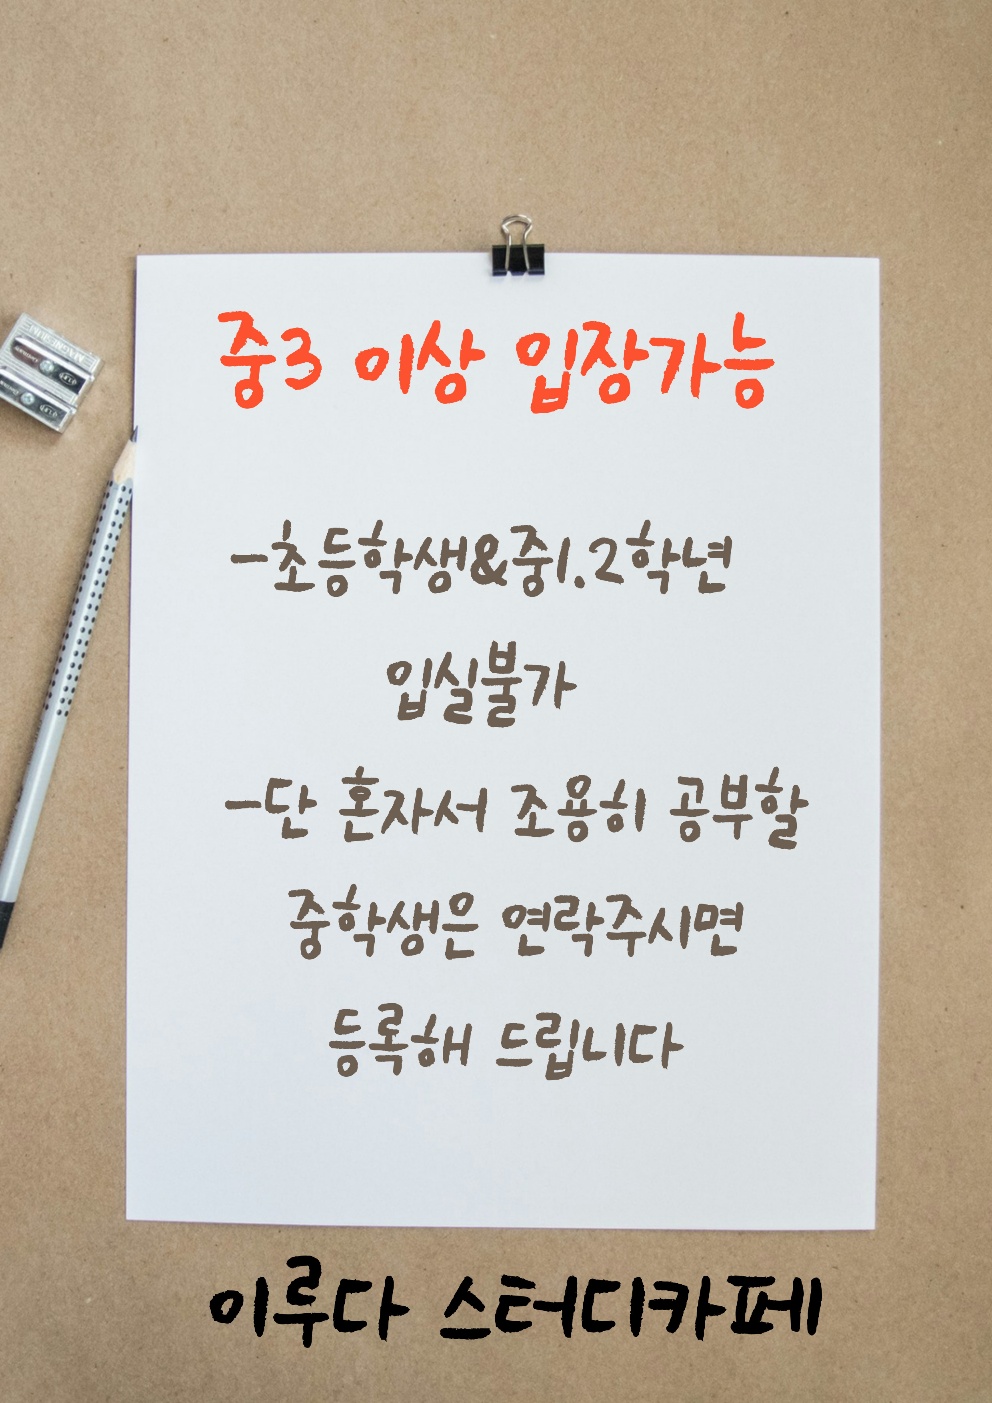 중3 이상 입장가능
-초등학생&중1.2학년
입실불가
-단 혼자서 조용히 공부할
중학생은 연락주시면
등록해 드립니다
이루다 스터디카페